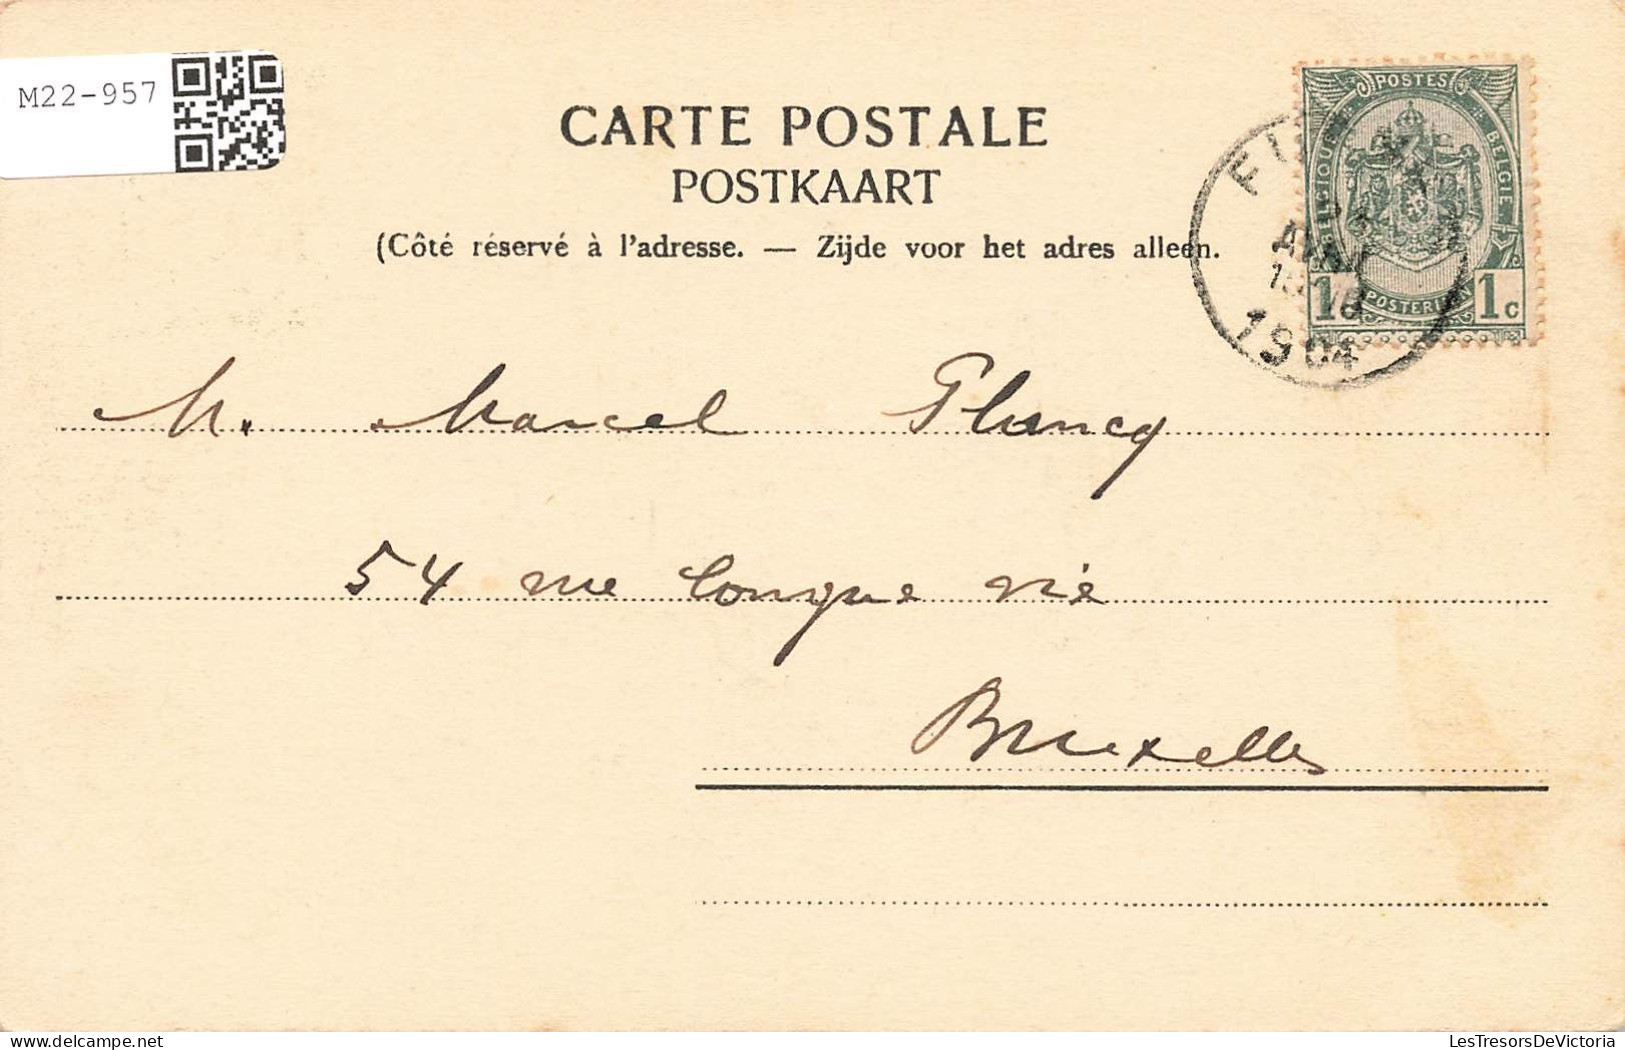 M22-957
CARTE POSTALE
POSTKAART
(Côté réservé à l'adresse. — Zijde voor het adres alleen.
POSTES
BELGIQUE
BELGIE
POSTERIJEN
1 1c
AVR
1904
M. Marcel Plancq
54 rue longue vie
Bruxelles
LesTresorsDeVictoria